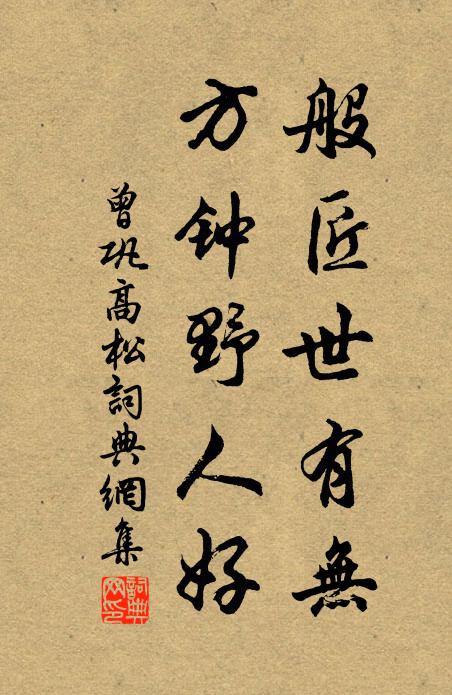 般匠世有無
方钟野人好
曾巩高松詞典網集
詞典網印